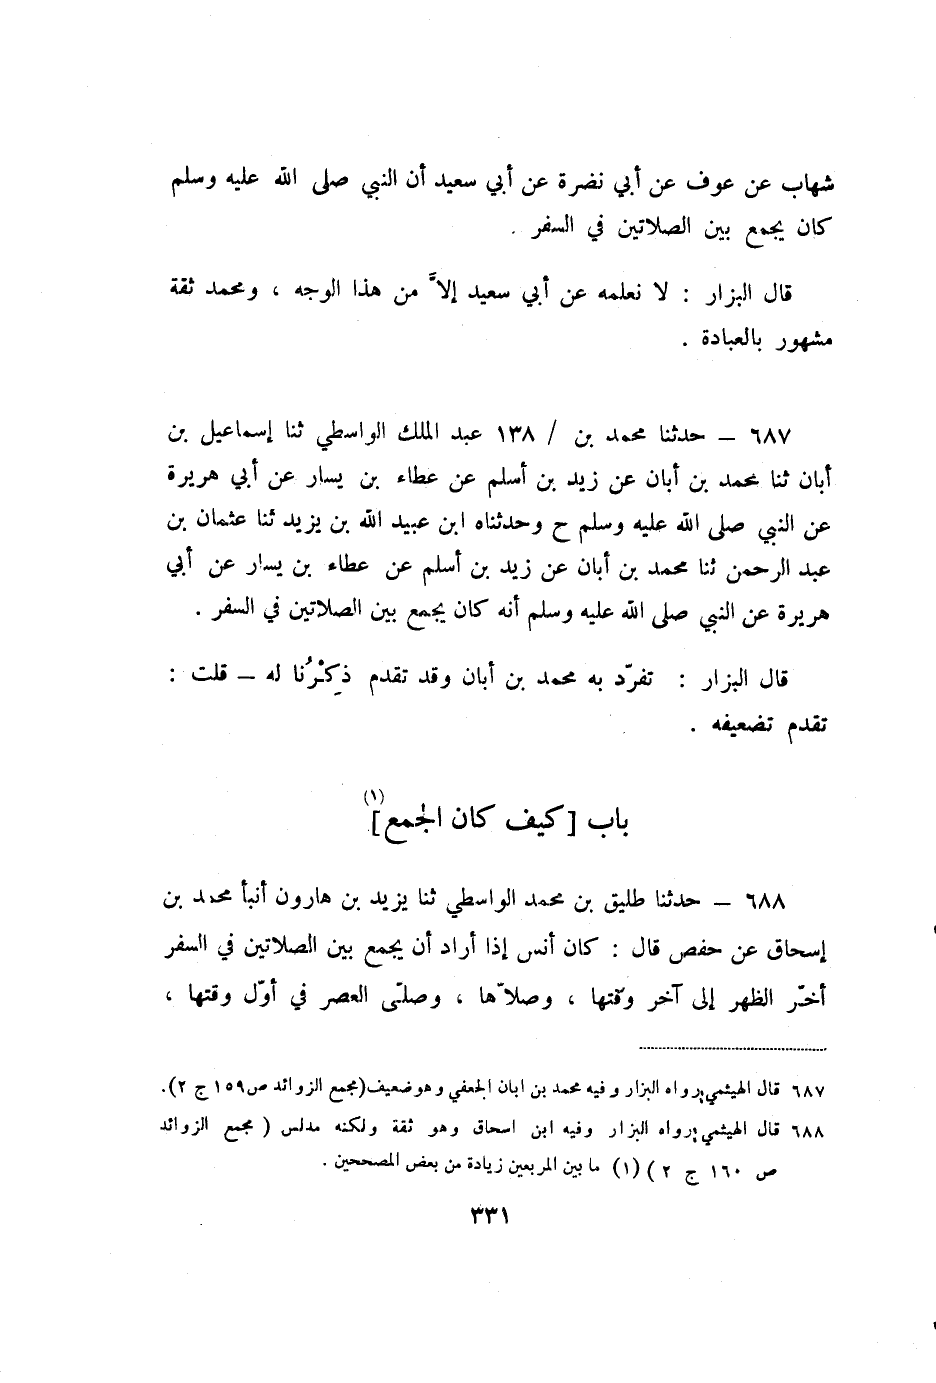 شهاب عن عوف عن أبي نضرة عن أبي سعيد أن النبي صلى الله عليه وسلم
كان يجمع بين الصلاتين في السفر .
قال البزار : لا نعلمه عن أبي سعيد إلاَّ من هذا الوجه ، ومحمد ثقة
مشهور بالعبادة .
٦٨٧ – حدثنا محمد بن / ١٣٨ عبد الملك الواسطي ثنا إسماعيل بن
أبان ثنا محمد بن أبان عن زيد بن أسلم عن عطاء بن يسار عن أبي هريرة
عن النبي صلى الله عليه وسلم ح وحدثناه ابن عبيد الله بن يزيد ثنا عثمان بن
عبد الرحمن ثنا محمد بن أبان عن زيد بن أسلم عن عطاء بن يسار عن أبي
هريرة عن النبي صلى الله عليه وسلم أنه كان يجمع بين الصلاتين في السفر .
قال البزار : تفرّد به محمد بن أبان وقد تقدم ذِكْرُنا له – قلت :
تقدم تضعيفه .
باب [كيف كان الجمع](١)
٦٨٨ – حدثنا طليق بن محمد الواسطي ثنا يزيد بن هارون أنبأ محمد بن
إسحاق عن حفص قال : كان أنس إذا أراد أن يجمع بين الصلاتين في السفر
أخّر الظهر إلى آخر وقتها ، وصلاّها ، وصلّى العصر في أوّل وقتها ،
٦٨٧ قال الهيثمي: رواه البزار وفيه محمد بن ابان الجعفي وهو ضعيف (مجمع الزوائد ص١٥٩ ج ٢).
٦٨٨ قال الهيثمي: رواه البزار وفيه ابن اسحاق وهو ثقة ولكنه مدلس ( مجمع الزوائد
ص ١٦٠ ج ٢ ) (١) ما بين المربعين زيادة من بعض المصححين .
٣٣١